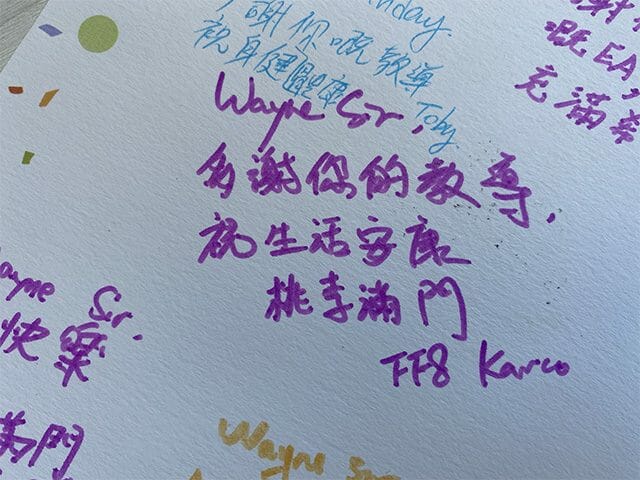 nday
謝你嘅教導
祝身健康
Toby
嘅EA
充滿
Wayne Sir,
多謝你的教導,
祝生活安康
桃李滿門
FF8 Karco
ayne Sir.
快樂
滿門
Wayne Sir